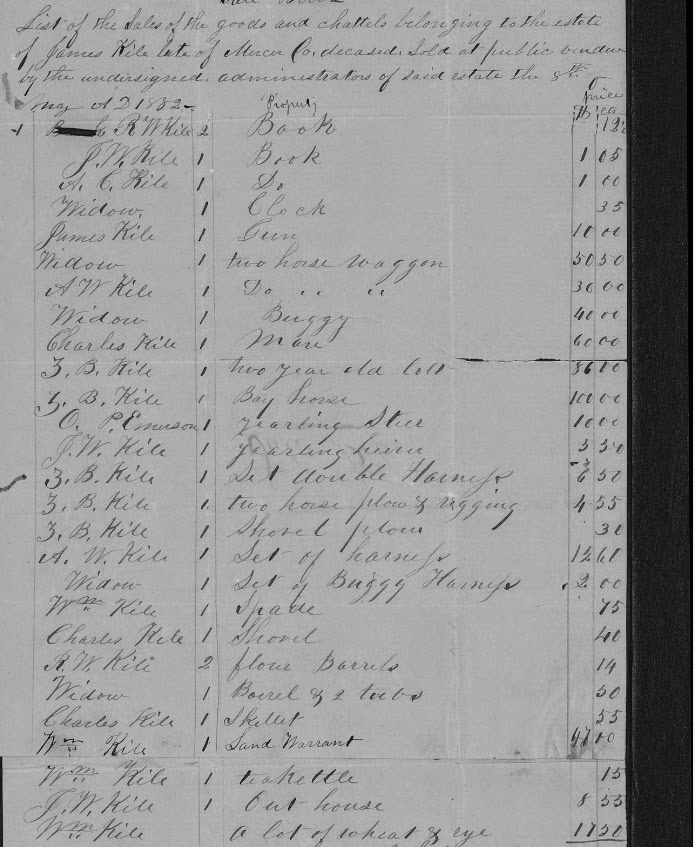 List of the Sales of the goods and chattels belonging to the estate
of James Kile late of Mercer Co. deceased. Sold at public vendue
by the undersigned administrators of said estate the 8th
May A D 1852 - Property price
1 R W Kile 2 Book 12½
J. W. Kile 1 Book 1 05
A. C. Kile 1 Do 1 00
Widow. 1 Clock 35
James Kile 1 Gun 10 00
Widow 1 two horse waggon 50 50
A W Kile 1 Do " " 30 00
Widow 1 Buggy 40 00
Charles Kile 1 Mare 60 00
Z. B. Kile 1 two year old colt 86 00
Z. B. Kile 1 Bay horse 100 00
O. P. Emerson 1 yearling Steer 10 00
J. W. Kile 1 yearling heifer 5 50
Z. B. Kile 1 Set double Harness 6 50
Z. B. Kile 1 two horse plow & rigging 4 55
Z. B. Kile 1 Shovel plow 30
A. W. Kile 1 Set of harness 12 61
Widow 1 Set of Buggy Harness 2 00
Wm Kile 1 Spade 75
Charles Kile 1 Shovel 40
R. W. Kile 2 flour Barrels 14
Widow 1 Barrel & 2 tubs 50
Charles Kile 1 Skillet 55
Wm Kile 1 Land Warrant 00
Wm Kile 1 teakettle 15
J. W. Kile 1 Out house 8 55
Wm Kile A lot of wheat & rye 17 50